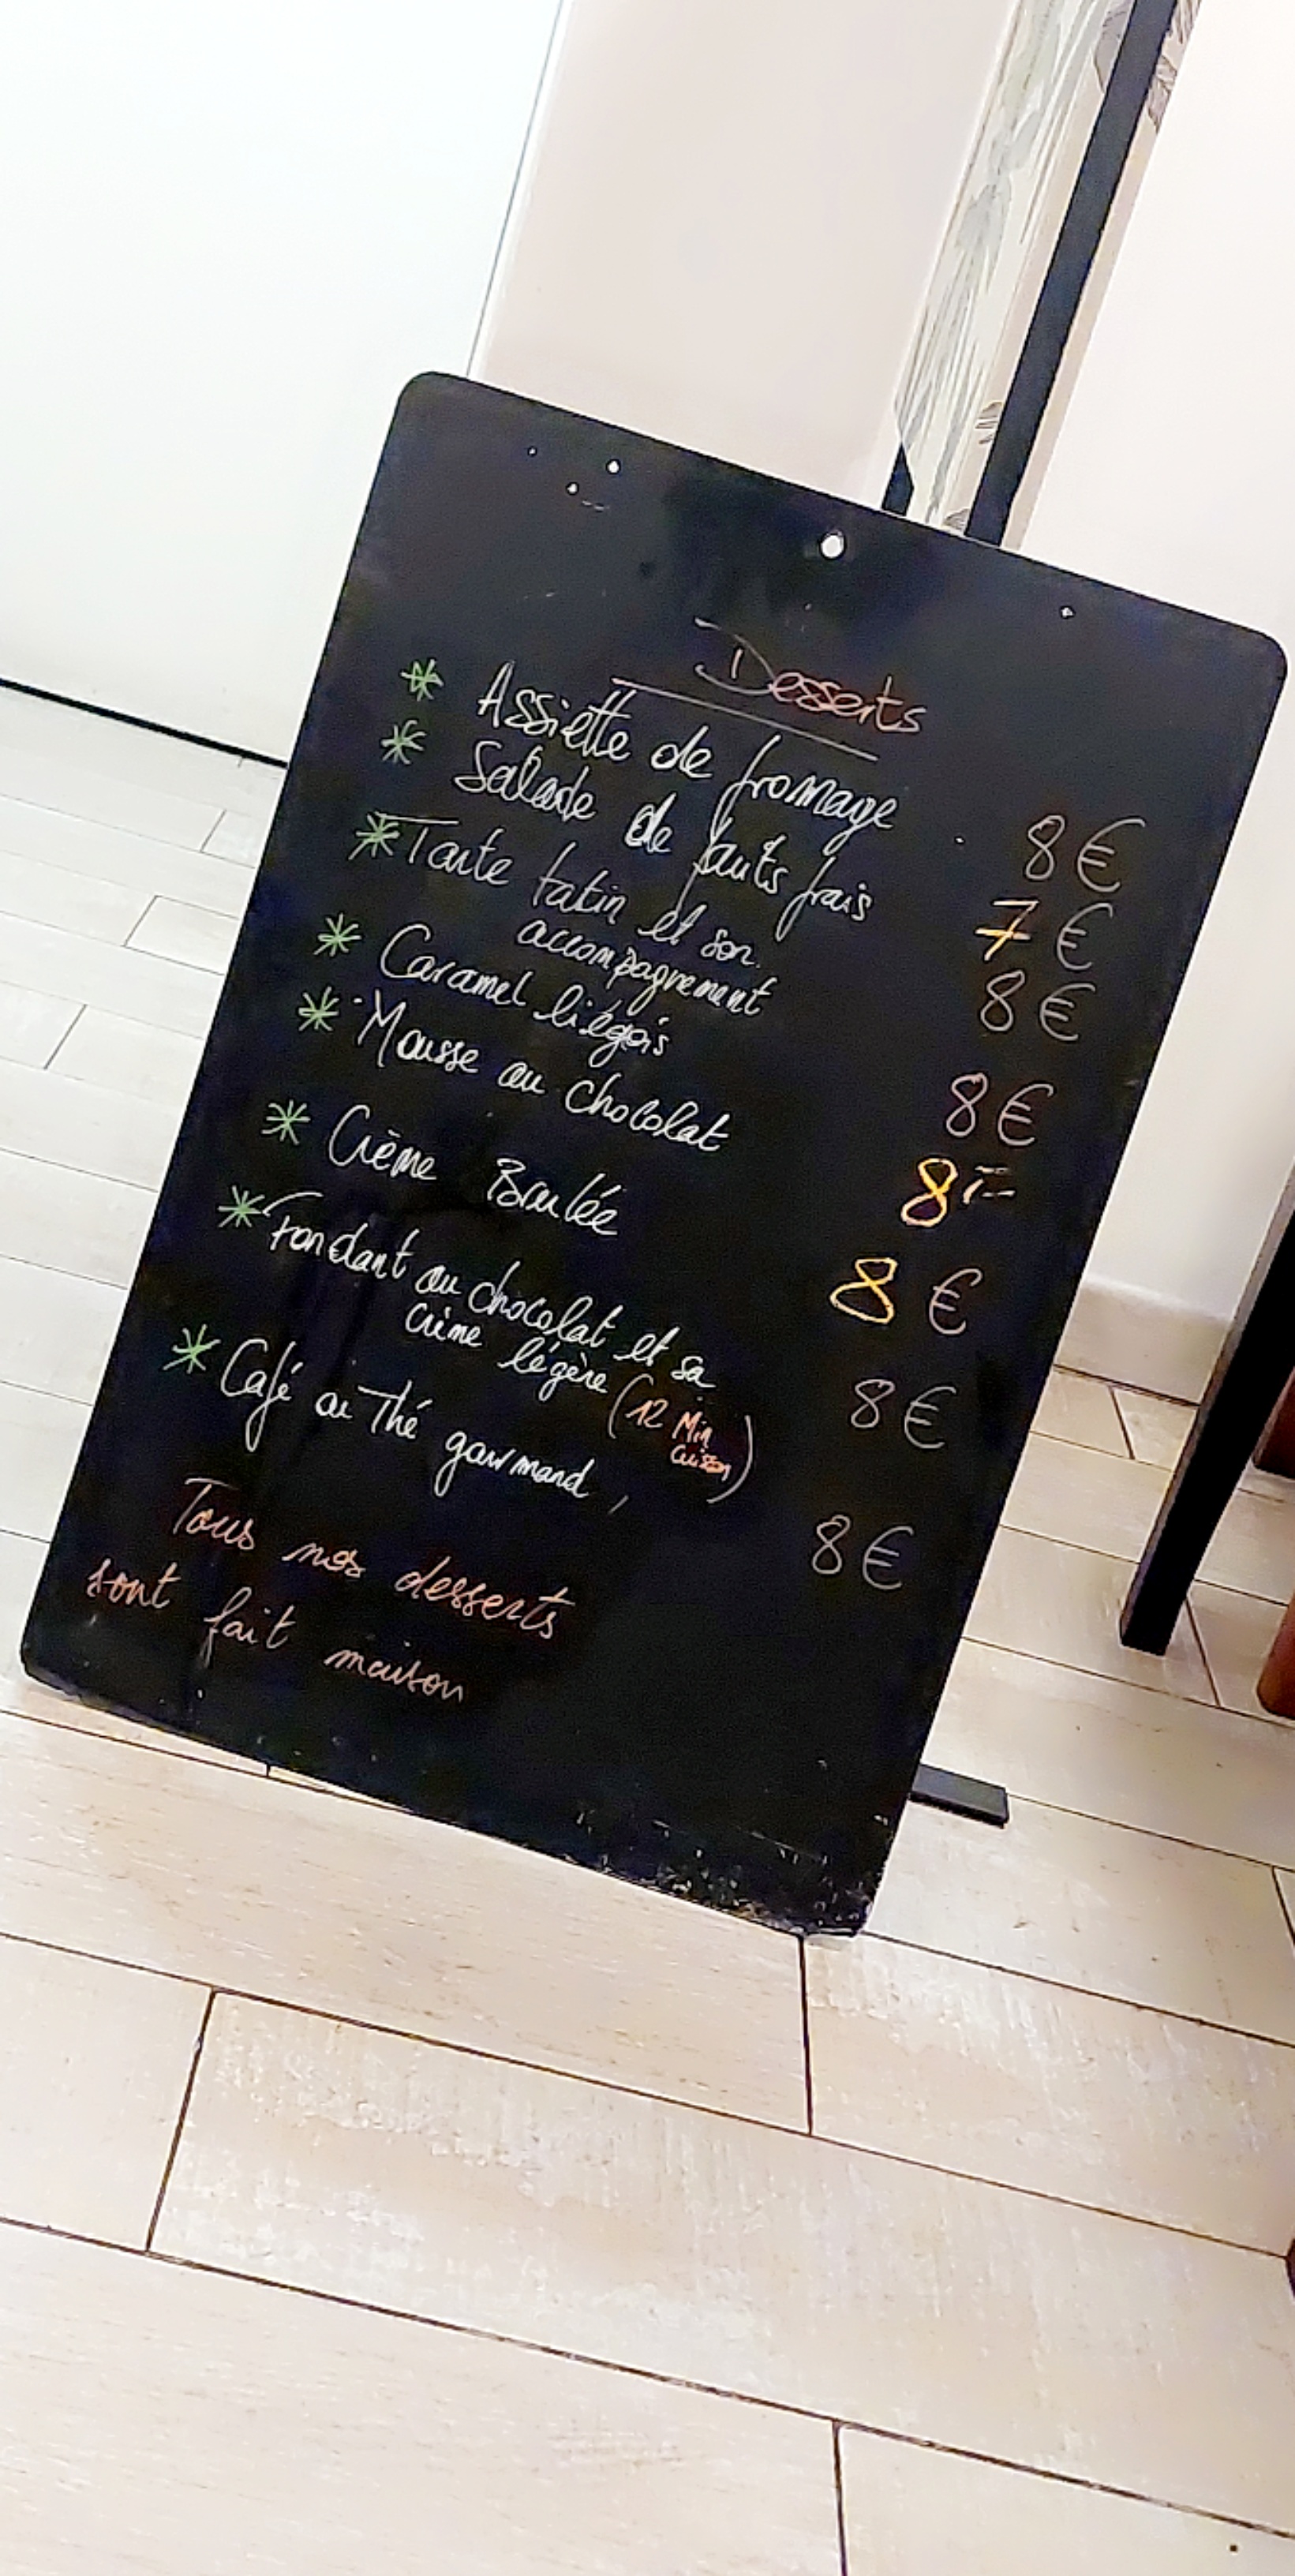 Desserts
* Assiette de fromage 8 €
* Salade de fruits frais 7 €
* Tarte tatin et son 8 €
accompagnement
* Caramel liégois 8 €
* Mousse au chocolat 8
* Crème Brulée 8 €
* Fondant au chocolat et sa
crème légère (12 Min 8 €
Cuisson)
* Café ou Thé gourmand, 8 €
Tous nos desserts
sont fait maison